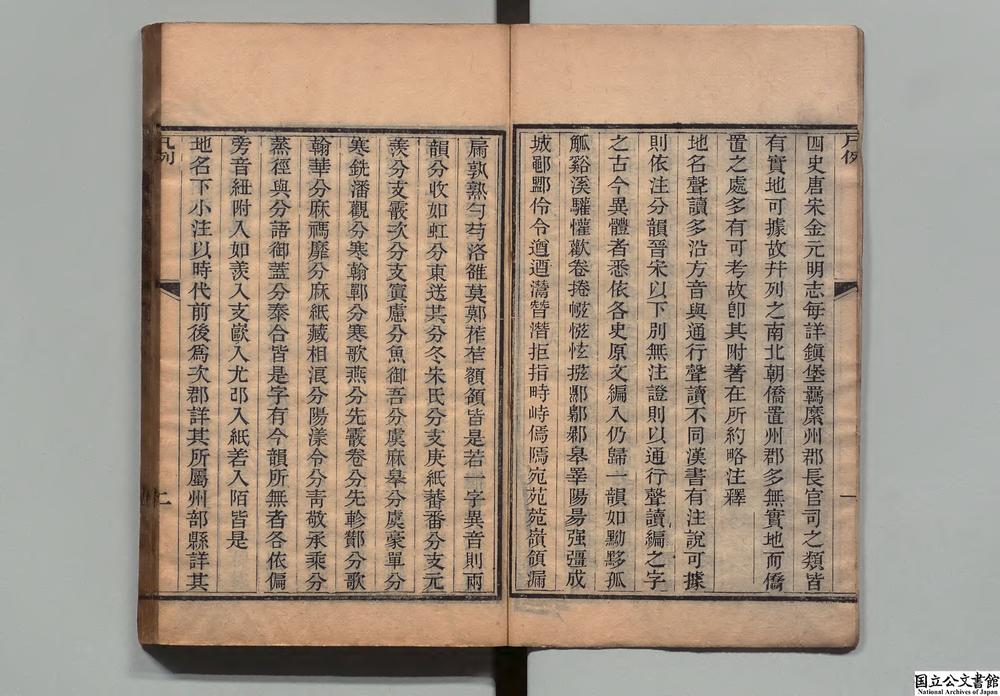 凡例
一
四史唐宋金元明志每詳鎭堡羈縻州郡長官司之類皆
有實地可據故幷列之南北朝僑置州郡多無實地而僑
置之處多有可考故卽其附著在所約略注釋
地名聲讀多沿方音與通行聲讀不同漢書有注說可據
則依注分韻晉宋以下別無注證則以通行聲讀編之字
之古今異體者悉依各史原文編入仍歸一韻如黝黟孤
觚谿溪驩懽歡卷捲
皋睪陽昜强彊成
城酃酃伶令遒遒灊朁潛拒指畤峙傿隝宛苑菀嶺領漏
扇孰熟勻芍洛雒莫鄚莋筰額頟皆是若一字異音則兩
韻分收如虹分東送其分冬朱氏分支庚紙蕃番分支元
羨分支霰次分支寘慮分魚御吾分虞麻皋分虞豪單分
寒銑潘觀分寒翰鄲分寒歌燕分先霰卷分先軫酇分歌
翰華分麻禡靡分麻紙藏相浪分陽漾令分靑敬承乘分
蒸徑與分語御蓋分泰合皆是字有今韻所無者各依偏
旁音紐附入如羨入支嶔入尤邔入紙若入陌皆是
地名下小注以時代前後爲次郡詳其所屬州部縣詳其
凡例
二
国立公文書館
National Archives of Japan